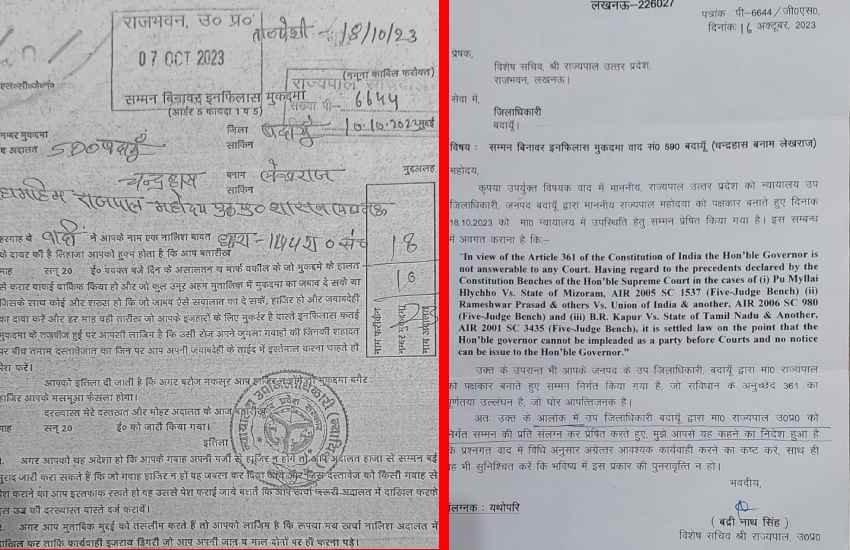 राजभवन, उ० प्र०
07 OCT 2023
ता०पेशी - 18/10/23
(नमूना काबिल फरोख्त)
राज्यपाल
सम्मन बिनावर इनफिलास मुकदमा
संख्या पी- 6644
(आर्डर 5 कायदा 1 व 5)
नम्बर मुकदमा
जिला बदायूँ
व अदालत SDO बदायूँ
साकिन
चन्द्रहास बनाम लेखराज
मुद्दआलह
साकिन
महामहिम राजपाल महोदय
हरगाह वे वादी ने आपके नाम एक नालिश बाबत धारा-144
के दायर की है लिहाजा आपको हुक्म होता है कि आप बतारीख
माह सन् 20 ई० बवक्त बजे दिन के असालतन या मार्फ वकील के जो मुकदमे के हालत
से करार वाकई वाकिफ किया हो और जो कुल उमूर अहम मुतालिक में मुकदमा का जबाव दे सके या
जिसके साथ कोई और शख्श हो कि जो जाबव ऐसे सवालात का दे सकें, हाजिर हो और जवाबदेही
का दावा करें और हर माह यही तारीख जो आपके इजहारो के लिए मुकर्रर है वास्ते इनफिसाल कतई
मुकदमा के तजबीज हुई पर आपको लाजिम है कि उसी रोज अपने जुमला गवाहों की जिनकी शहादत
पर बीच तमाम दस्तावेजात का जिन पर आप अपनी जवाबदेही के ताईद में इस्तेमाल करना चाहते हो
पेश करें।
18
10
नाम फरीकैन
नम्बर मुकदमा
नाम अदालत
आपको इत्तिला दी जाती है कि अगर बरोज मजकूर आप हाजिर न होंगे तो मुकदमा बगैर
हाजिर आपके मसमूआ फैसला होगा।
दरख्वास्त मेरे दस्तखत और मोहर अदालत के आज बतारीख
माह सन् 20 ई० को जारी किया गया।
इत्तिला
1. अगर आपको यह अदेशा हो कि आपके गवाह अपनी मर्जी से हाजिर न होंगे तो आप अदालत हाजा से सम्मन बई
मुराद जारी करा सकते हैं कि जो गवाह हाजिर न हो वह जबरन कर दिया जाये और जिस दस्तावेज को किसी गवाह से
पेश कराने का आप इस्तहकाक रखते हो वह उससे पेश कराई जाये बशर्ते कि आप खर्चा जरूरी अदालत में दाखिल करके
इस उज्र की दरख्वास्त वास्ते दर्ज करावें।
2. अगर आप मुताबिक मुद्दई को तसलीम करते हैं तो आपको लाजिम है कि रूपया मय खर्चा नालिश अदालत में
दाखिल कर ताकि कार्यवाही इजराय डिगरी जो आप अपनी जान व माल दोनों पर ही करना पड़े।
लखनऊ-226027
पत्रांक पी-6644/जी०एस०,
दिनांकः 16 अक्टूबर, 2023
प्रेषक,
विशेष सचिव, श्री राज्यपाल उत्तर प्रदेश,
राजभवन, लखनऊ।
सेवा में,
जिलाधिकारी
बदायूँ।
विषय : सम्मन बिनावर इनफिलास मुकदमा वाद सं० 590 बदायूँ (चन्द्रहास बनाम लेखराज)
महोदय,
कृपया उपर्युक्त विषयक वाद में माननीय, राज्यपाल उत्तर प्रदेश को न्यायालय उप
जिलाधिकारी, जनपद बदायूँ द्वारा माननीय राज्यपाल महोदया को पक्षकार बनाते हुए दिनांक
18.10.2023 को मा० न्यायालय में उपस्थिति हेतु सम्मन प्रेषित किया गया है। इस सम्बन्ध
में अवगत कराना है कि:-
"In view of the Article 361 of the Constitution of India the Hon'ble Governor is
not answerable to any Court. Having regard to the precedents declared by the
Constitution Benches of the Hon'ble Supreme Court in the cases of (i) Pu Myllai
Hlychho Vs. State of Mizoram, AIR 2005 SC 1537 (Five-Judge Bench) (ii)
Rameshwar Prasad & others Vs. Union of India & another, AIR 2006 SC 980
(Five-Judge Bench) and (iii) B.R. Kapur Vs. State of Tamil Nadu & Another,
AIR 2001 SC 3435 (Five-Judge Bench), it is settled law on the point that the
Hon'ble governor cannot be impleaded as a party before Courts and no notice
can be issue to the Hon'ble Governor."
उक्त के उपरान्त भी आपके जनपद के उप जिलाधिकारी, बदायूँ द्वारा मा० राज्यपाल
को पक्षकार बनाते हुए सम्मन निर्गत किया गया है, जो संविधान के अनुच्छेद 361 का
पूर्णतया उल्लंघन है, जो घोर आपत्तिजनक है।
अतः उक्त के आलोक में उप जिलाधिकारी बदायूँ द्वारा मा० राज्यपाल उ०प्र० को
निर्गत सम्मन की प्रति संलग्न कर प्रेषित करते हुए, मुझे आपसे यह कहने का निदेश हुआ है
कि प्रश्नगत वाद में विधि अनुसार अग्रेत्तर आवश्यक कार्यवाही करने का कष्ट करें, साथ ही
यह भी सुनिश्चित करें कि भविष्य में इस प्रकार की पुनरावृत्ति न हो।
भवदीय,
संलग्नक : यथोपरि
( बद्री नाथ सिंह )
विशेष सचिव श्री राज्यपाल, उ०प्र०